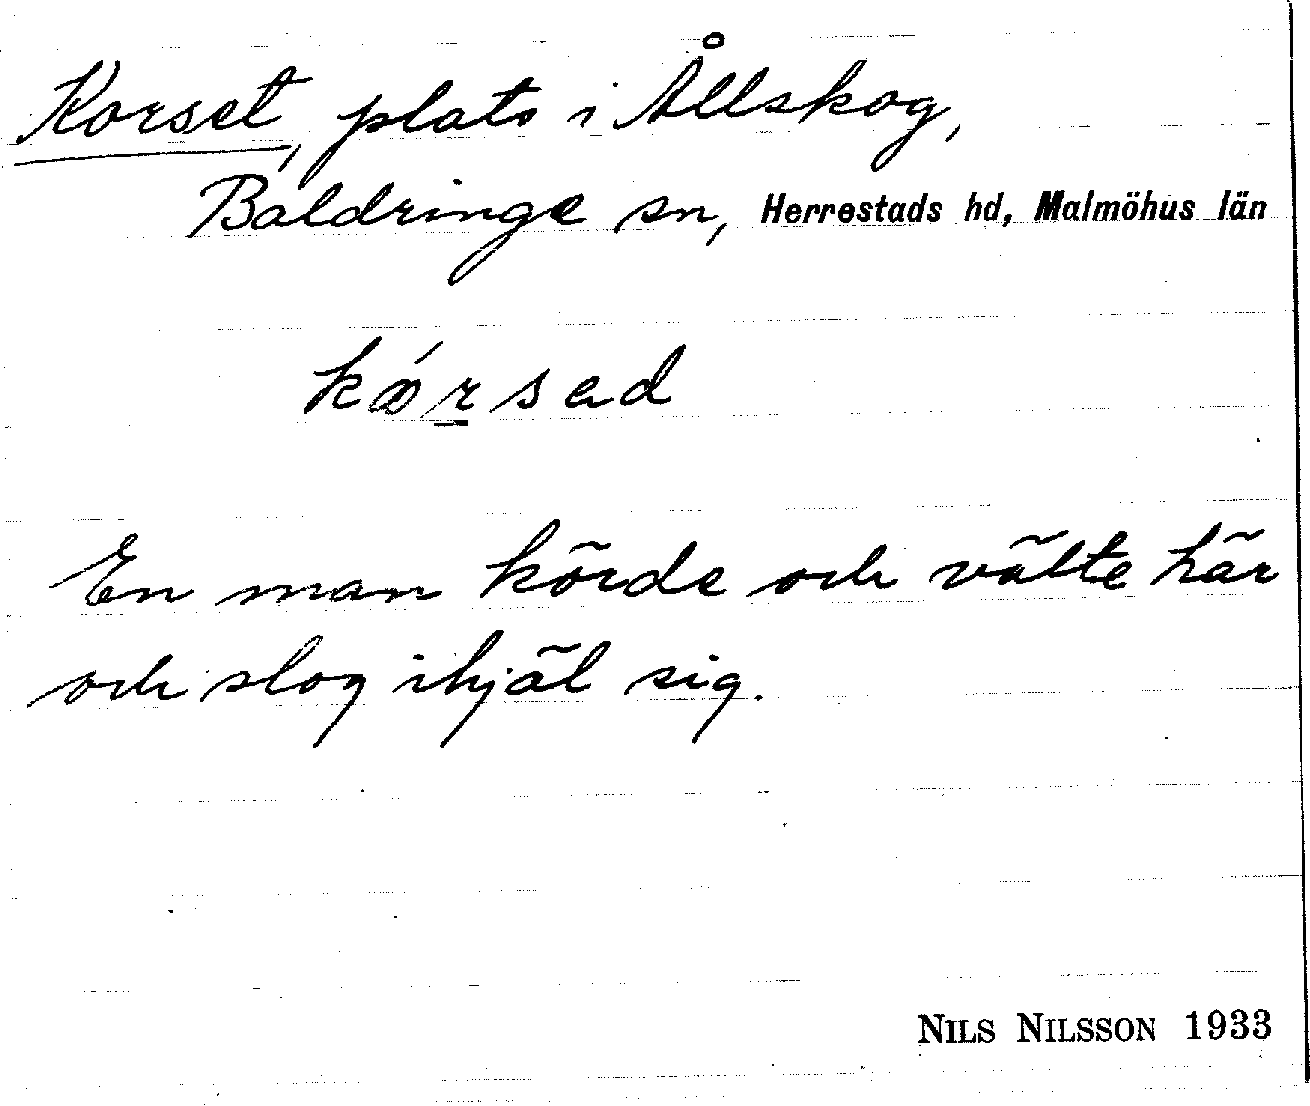 Korset, plats i Ållskog,
Baldringe sn, Herrestads hd, Malmöhus län
kǿrsad
En man körde och välte här
och slog ihjäl sig.
NILS NILSSON 1933